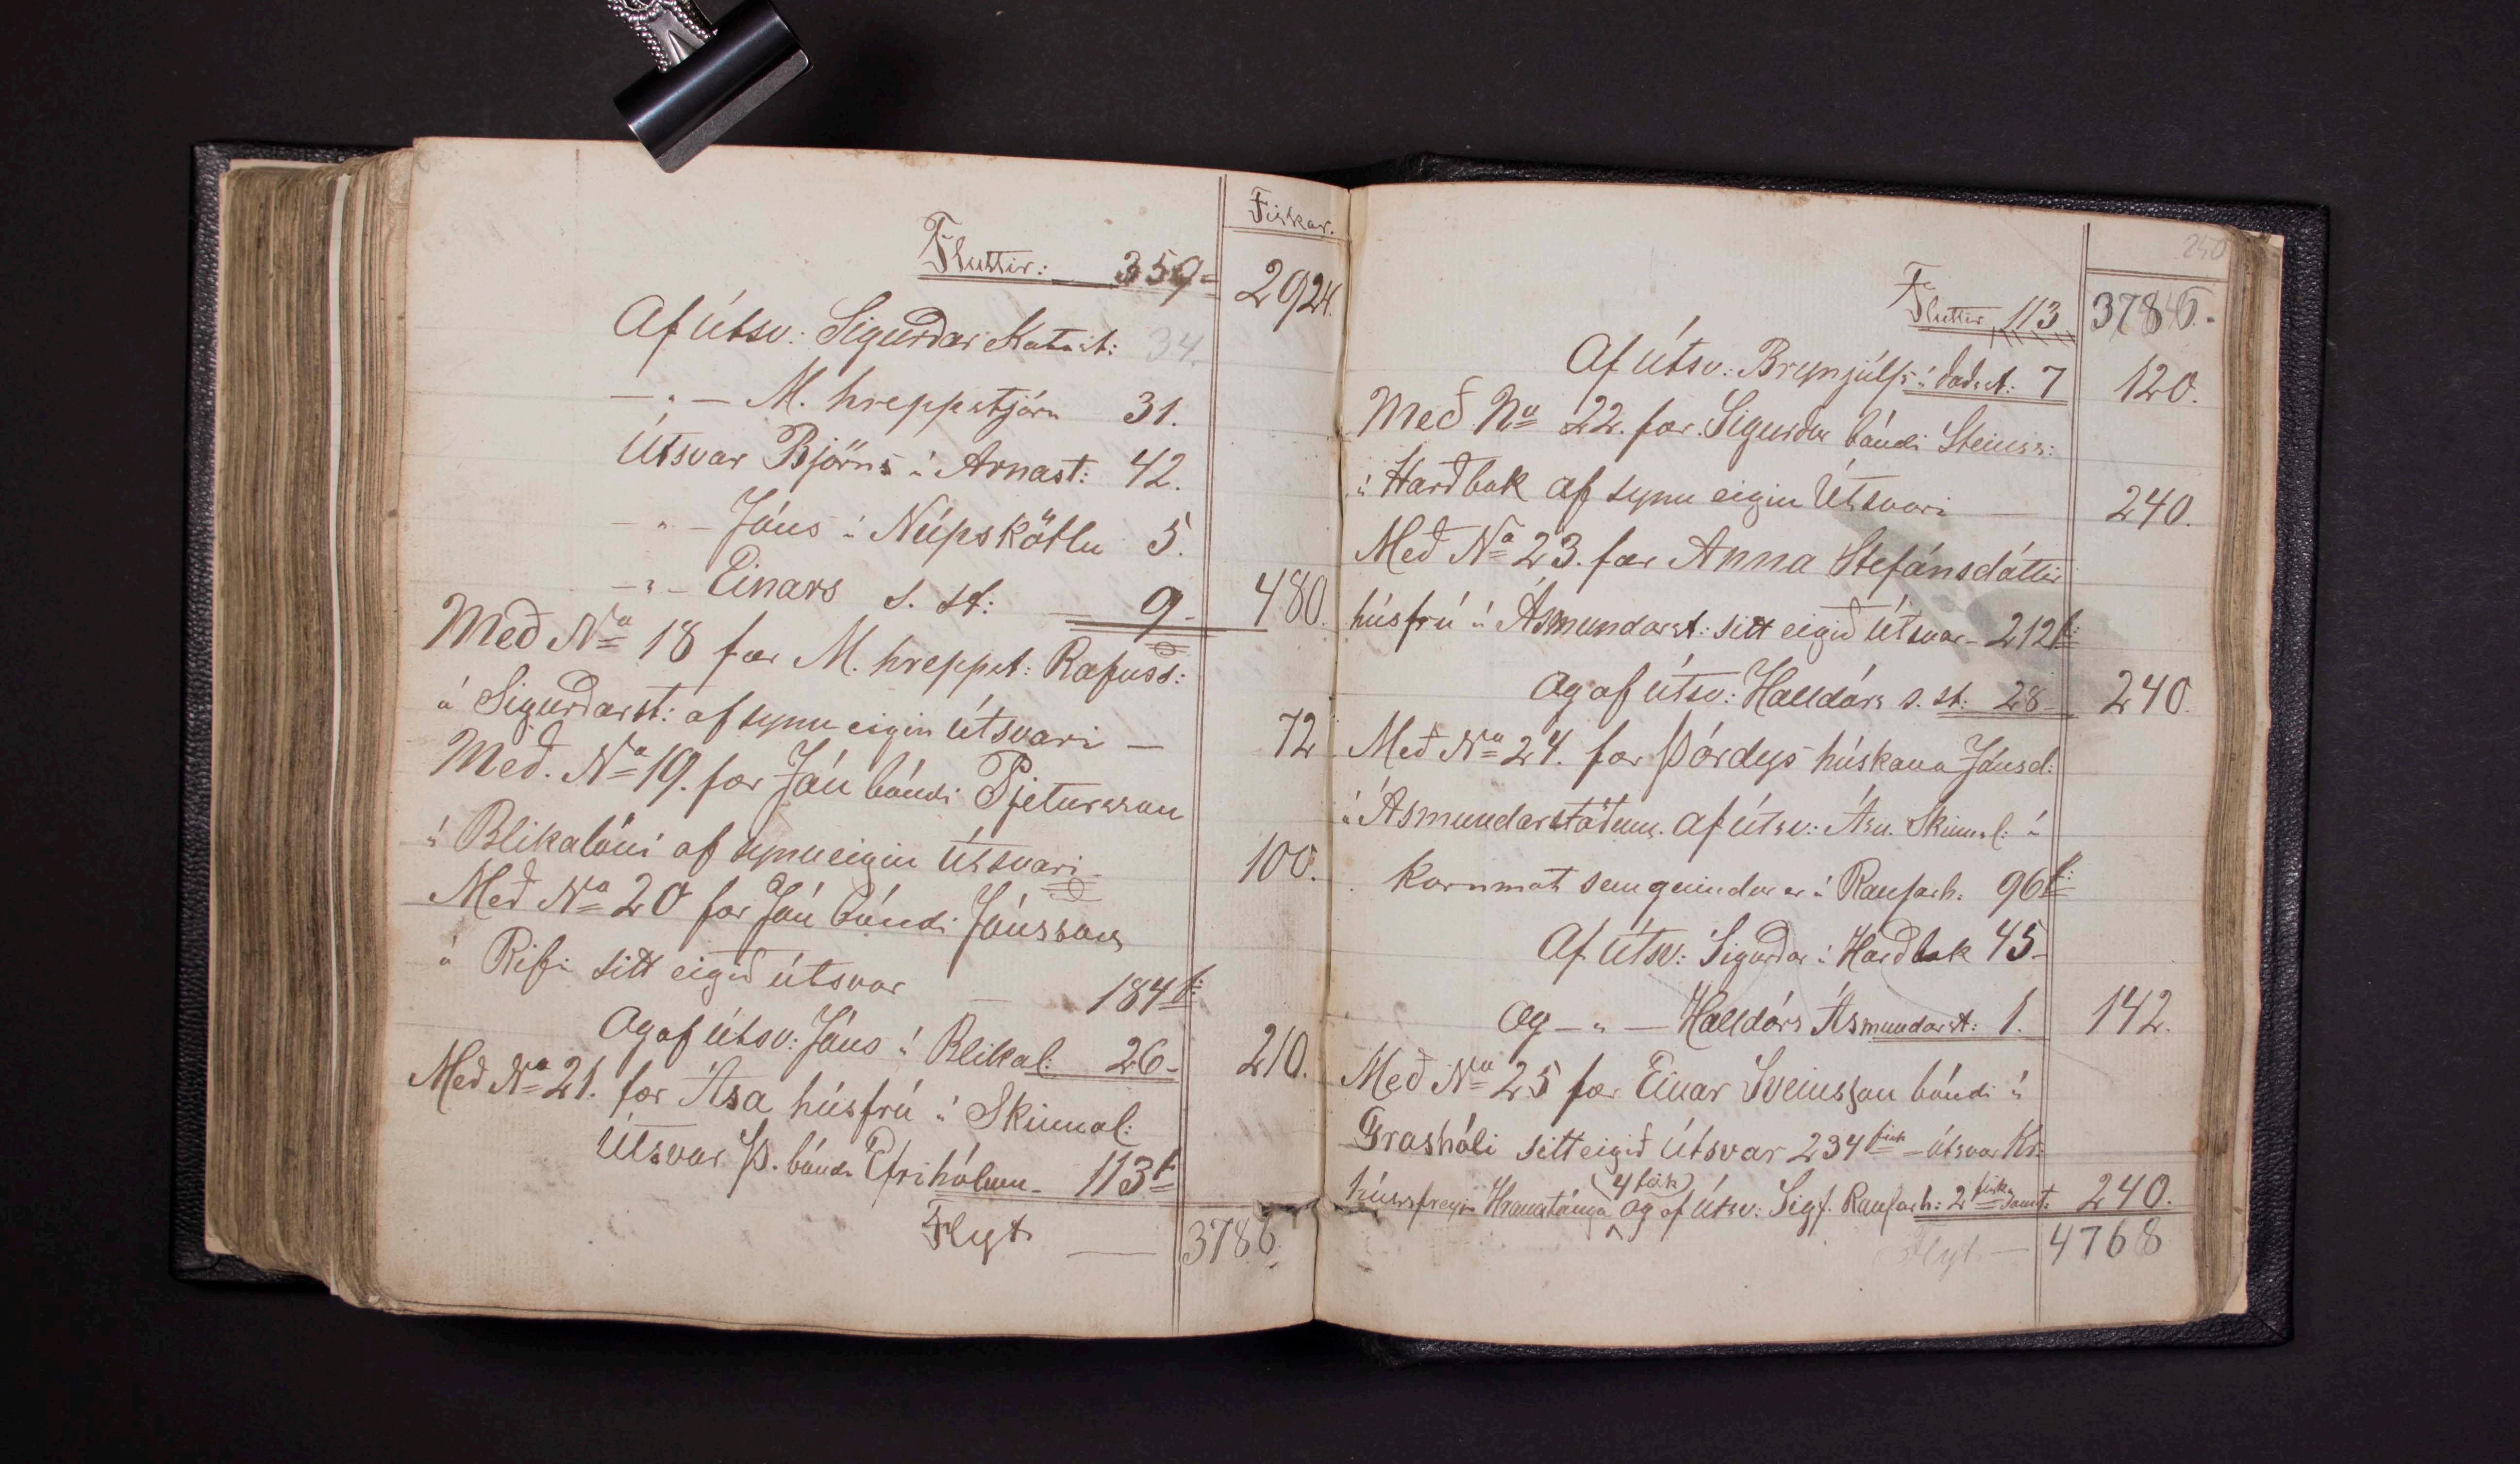 Fiskar.
Fluttir: 359- 2924.
Af útsv: Sigurdar Katast: 34.
— " — M. hreppstjóra 31.
Útsvar Björns á Arnast: 42.
— " — Jóns á Núpskötlu 5.
— " — Einars s. st: 9- 480.
Með No 18 fær M. hreppst: Rafnss:
á Sigurdarst: af synu eigin útsvari — 72
Með. No 19. fær Jón bóndi Pjetursson
á Blikalóni af synu eigin Útsvari- 100.
Með No 20 fær Jón bóndi Jónsson
á Rifi sitt eigið útsvar — 184 f:
Og af útsv: Jóns á Blikal: 26- 210.
Með No 21. fær Ása húsfrú á Skinnal:
Útsvar Þ. bónda Efrihólum- 113 f
Flyt — 3786.
240
Fluttir 113 3786.-
Af útsv: Brynjúlfs á daðst: 7 120.
Með No 22. fær Sigurdur bóndi Steinss:
á Harðbak af synu eigin Útsvari — 240.
Með No 23. fær Anna Stefánsdóttir
húsfrú á Ásmundarst: sitt eigið útsvar- 212 f:
Og af útsv: Halldórs s. st. 28- 240.
Með No 24. fær Þórdys húskona Jónsd:
á Ásmundarstöðum. Af Útsv: Ásu Skinnal: í
kornmat sem geimdur er á Raufarh: 96 f:
Af Útsv: Sigurdar á Harðbak 45-
Og — " — Halldórs Ásmundarst: 1. 142.
Með No 25 fær Einar Sveinsson bóndi á
Grashóli sitt eigið Útsvar 234 fisk — útsvar Kr:
4 fisk
Hrauntánga og af útsv: Sigf. Raufarh: 2 fiska samt: 240.
Flyt — 4768